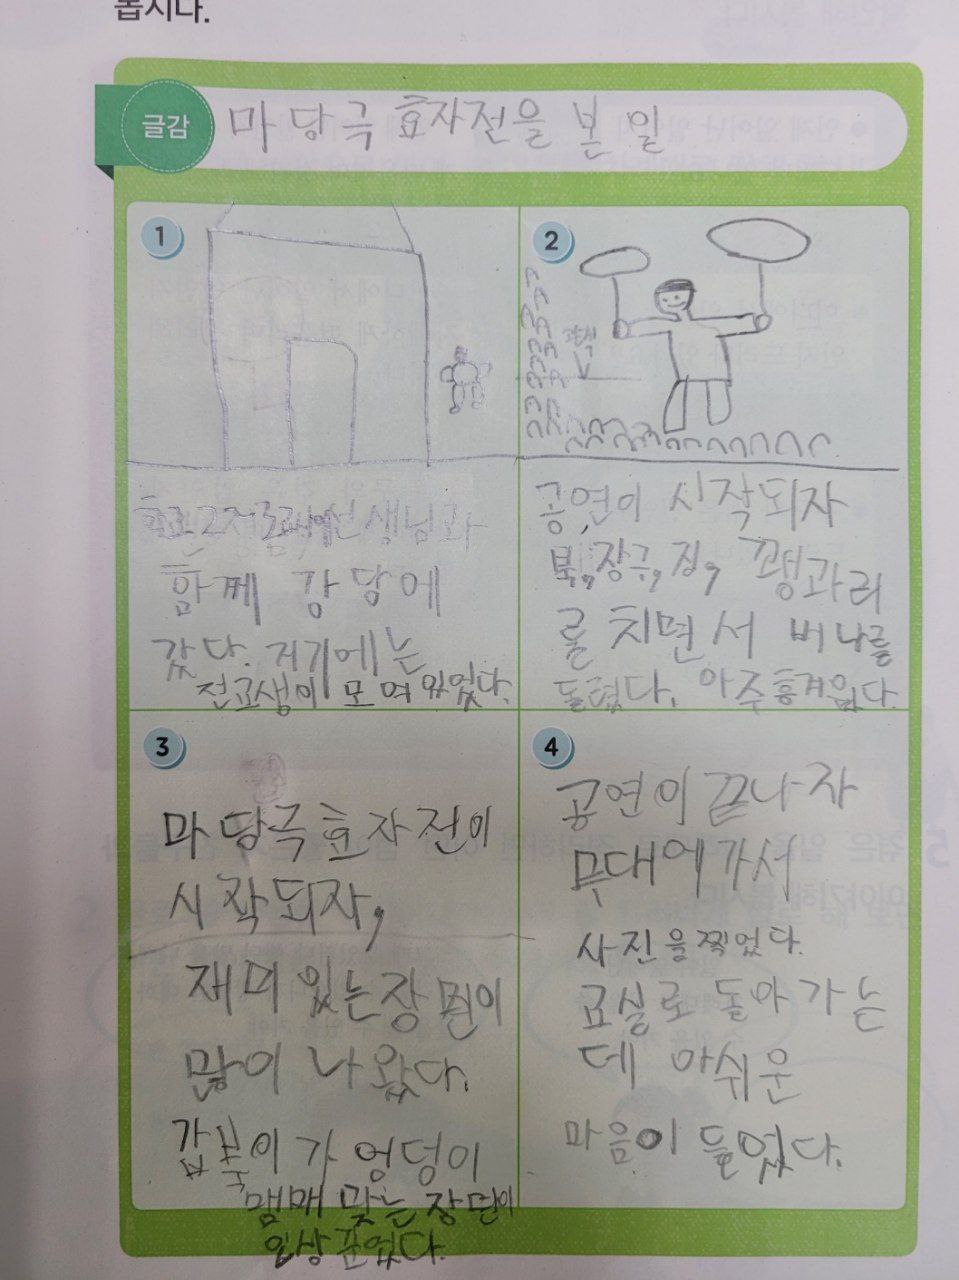 봅시다.
글감 마당극 효자전을 본 일
1
선생님과
함께 강당에
갔다. 저기에는
전교생이 모여있었다.
2
관객
공연이 시작되자
북,장구,징, 꽹과리
를 치면서 버나를
돌렸다. 아주흥겨웠다.
3
마당극효자전이
시작되자,
재미있는장면이
많이 나왔다.
갑북이가 엉덩이
맴매 맞는 장면이
인상깊었다.
4
공연이끝나자
무대에가서
사진을찍었다.
교실로 돌아가는
데 아쉬운
마음이 들었다.